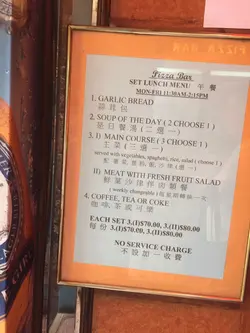 Pizza Bar
SET LUNCH MENU 午餐
MON-FRI 11:30AM-2:15PM
1. GARLIC BREAD
蒜茸包
2. SOUP OF THE DAY (2 CHOOSE 1)
是日餐湯(二選一)
3. I) MAIN COURSE (3 CHOOSE 1)
主菜(三選一)
served with vegetables, spaghetti, rice, salad (choose 1)
配薯菜,意粉,飯,沙律(選一)
II) MEAT WITH FRESH FRUIT SALAD
鮮菓沙律伴肉類餐
(weekly changeable
4. COFFEE, TEA OR COKE
咖啡,茶或可樂
EACH SET 3.(I)$70.00, 3.(II)$80.00
每份 3.(I)$70.00, 3.(II)$80.00
NO SERVICE CHARGE
不設加一收費